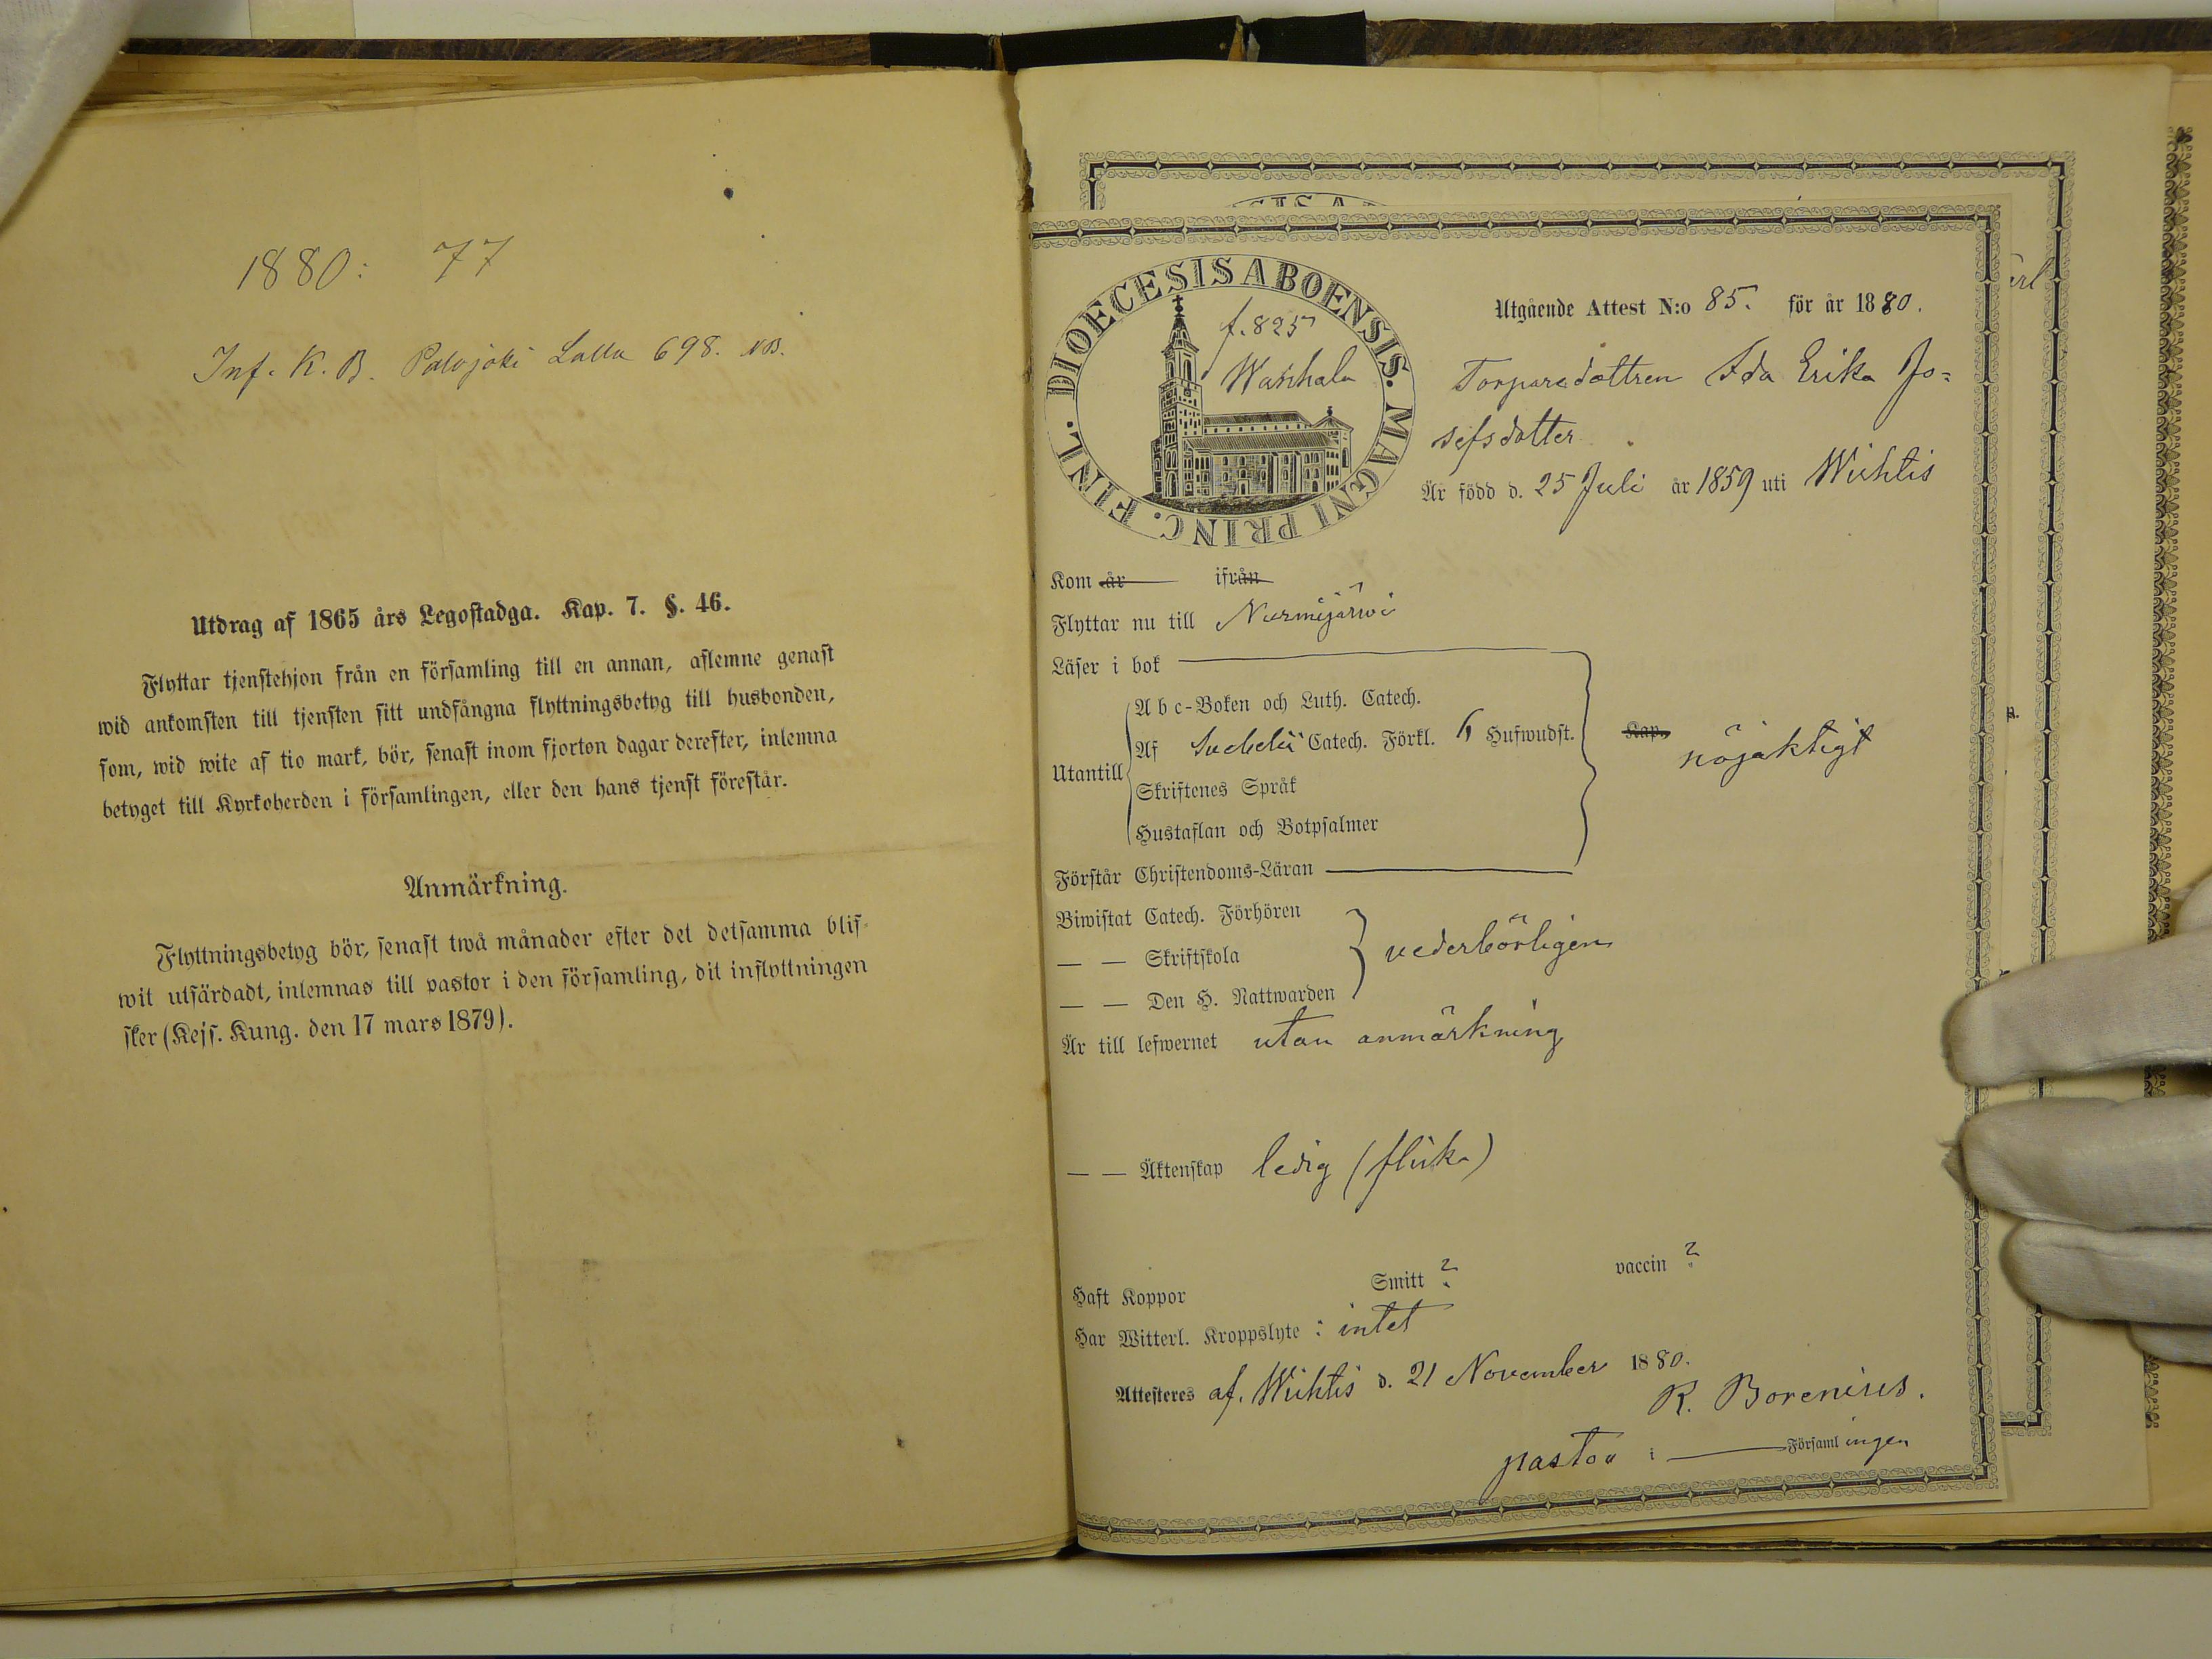 1880: 77
Inf. K. B. Palojoki Lalla 698. NB.
Utdrag af 1865 års Legostadga. Kap. 7. §. 46.
Flyttar tjenstehjon från en församling till en annan, aflemne genast
wid ankomsten till tjensten sitt undfångna flyttningsbetyg till husbonden,
som, wid wite af tio mark, bör, senast inom fjorton dagar derefter, inlemna
betyget till Kyrkoherden i församlingen, eller den hans tjenst förestår.
Anmärkning.
Flyttningsbetyg bör, senast twå månader efter det detsamma blif-
wit utfärdadt, inlemnas till pastor i den församling, dit inflyttningen
sker (Kejs. Kung. den 17 mars 1879).
DIOECESIS ABOENSIS. MAGNI PRINC. FINL.
f. 825
Wanhala
Utgående Attest N:o 85. för år 1880.
Torparedottren Ida Erika Jo=
sefsdotter
Är född d. 25 Juli år 1859 uti Wichtis
Kom år ifrån
Flyttar nu till Nurmijärwi
Läser i bok
Utantill
Abc-Boken och Luth. Catech.
Af Svebelii Catech. Förkl. 6 Hufwudst.
Skriftenes Språk
Hustaflan och Botpsalmer
Kap.
nöjaktigt
Förstår Christendoms-Läran
Biwistat Catech. Förhören
— — Skriftskola
— — Den H. Nattwarden
vederbörligen
Är till lefwernet utan anmärkning
— — Äktenskap ledig (flicka)
Haft Koppor Smitt ? vaccin ?
Har Witterl. Kroppslyte : intet
Attesteres af. Wichtis d. 21 November 1880.
R. Borenius.
pastor i Församlingen